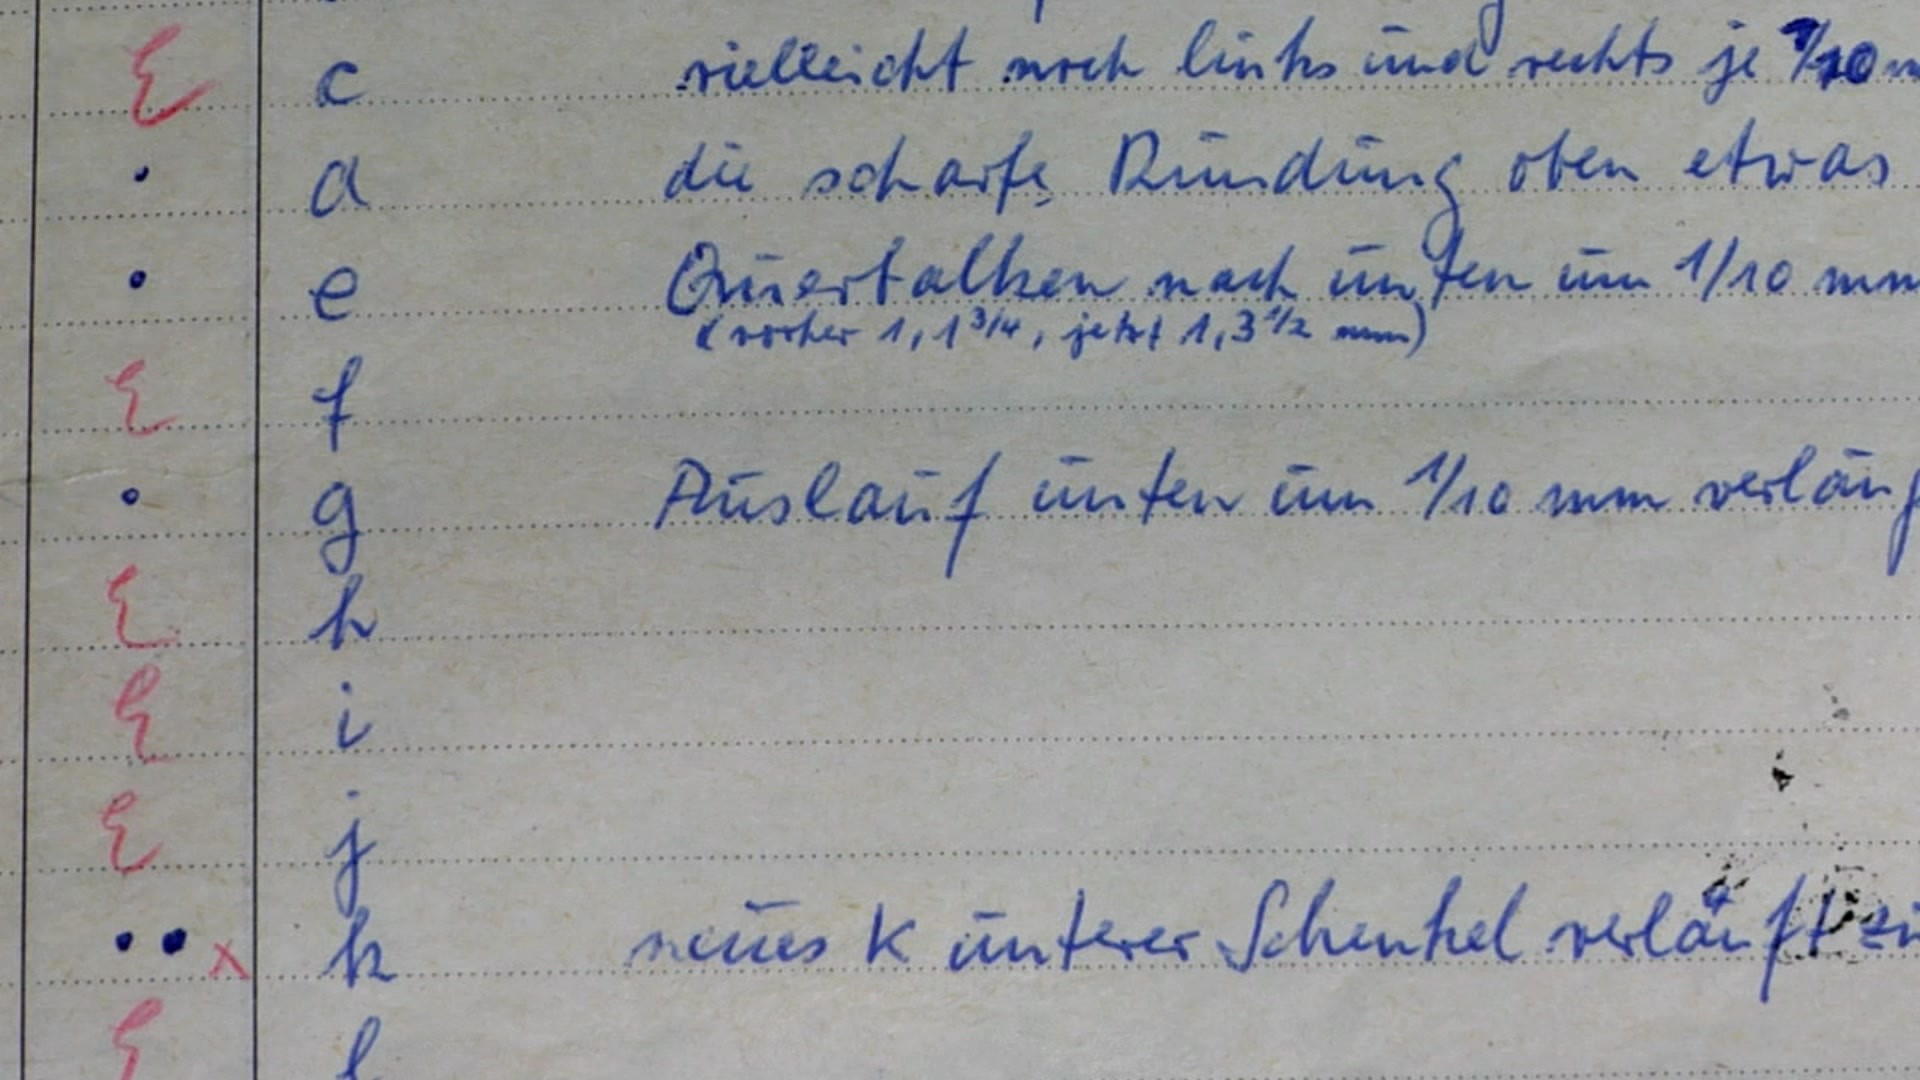 E c vielleicht noch links und rechts je 1/10 m
d die scharfe Rundung oben etwas
e Querbalken nach unten um 1/10 mm
(vorher 1,1 3/4, jetzt 1,3 1/2 mm)
E f
g Auslauf unten um 1/10 mm verläng
E h
E i
E j
x k neues K unterer Schenkel verläuft zu
E l